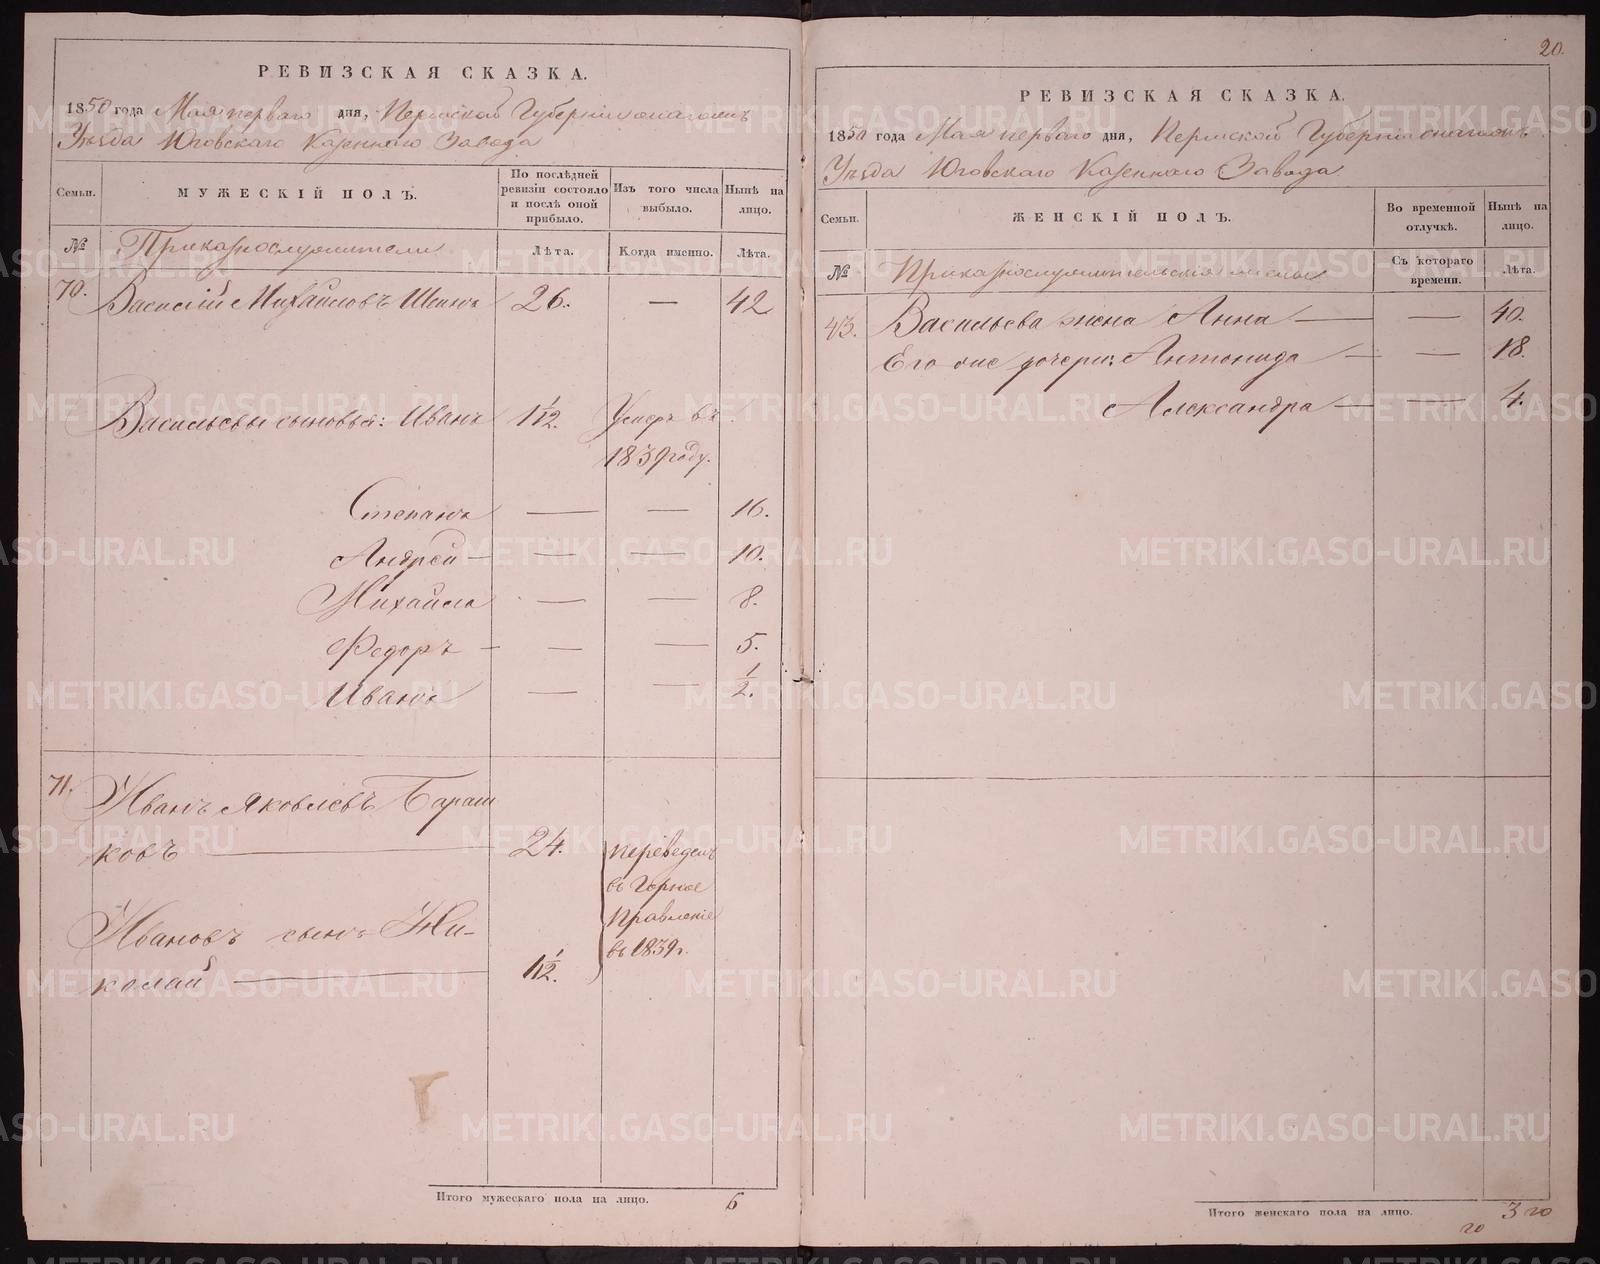 РЕВИЗСКАЯ СКАЗКА.
1850 года Мая перваго дня, Пермской Губерніи
Уѣзда Юговскаго Казеннаго Завода
Семьи.
МУЖЕСКІЙ ПОЛЪ.
По послѣдней ревизіи состояло и послѣ оной прибыло.
Изъ того числа выбыло.
Нынѣ на лицо.
№
Приказнослужители
Лѣта.
Когда именно.
Лѣта.
70. Василій Михайловъ 26. — 42
Васильевы сыновья: Иванъ 1 1/12. Умеръ въ
1839 году.
Степанъ — — 16.
Андрей — — 10.
Михайла — — 8.
Федоръ — — 5.
Иванъ — — 1/2.
71. Иванъ Яковлевъ Бараш
ковъ — 24. переведенъ
въ Горное
Правленіе
въ 1839 г.
Ивановъ сынъ Ни-
колай — 1 1/12.
Итого мужескаго пола на лицо. 6
20.
РЕВИЗСКАЯ СКАЗКА.
1850 года Мая перваго дня, Пермской Губерніи
Уѣзда Юговскаго Казеннаго Завода
Семьи.
ЖЕНСКІЙ ПОЛЪ.
Во временной отлучкѣ.
Нынѣ на лицо.
№
Приказнослужительскія жены
Съ котораго времени.
Лѣта.
43. Васильева жена Анна — — 40.
Его же дочери: Антонида — — 18.
Александра — — 4.
Итого женскаго пола на лицо. 3
METRIKI.GASO-URAL.RU